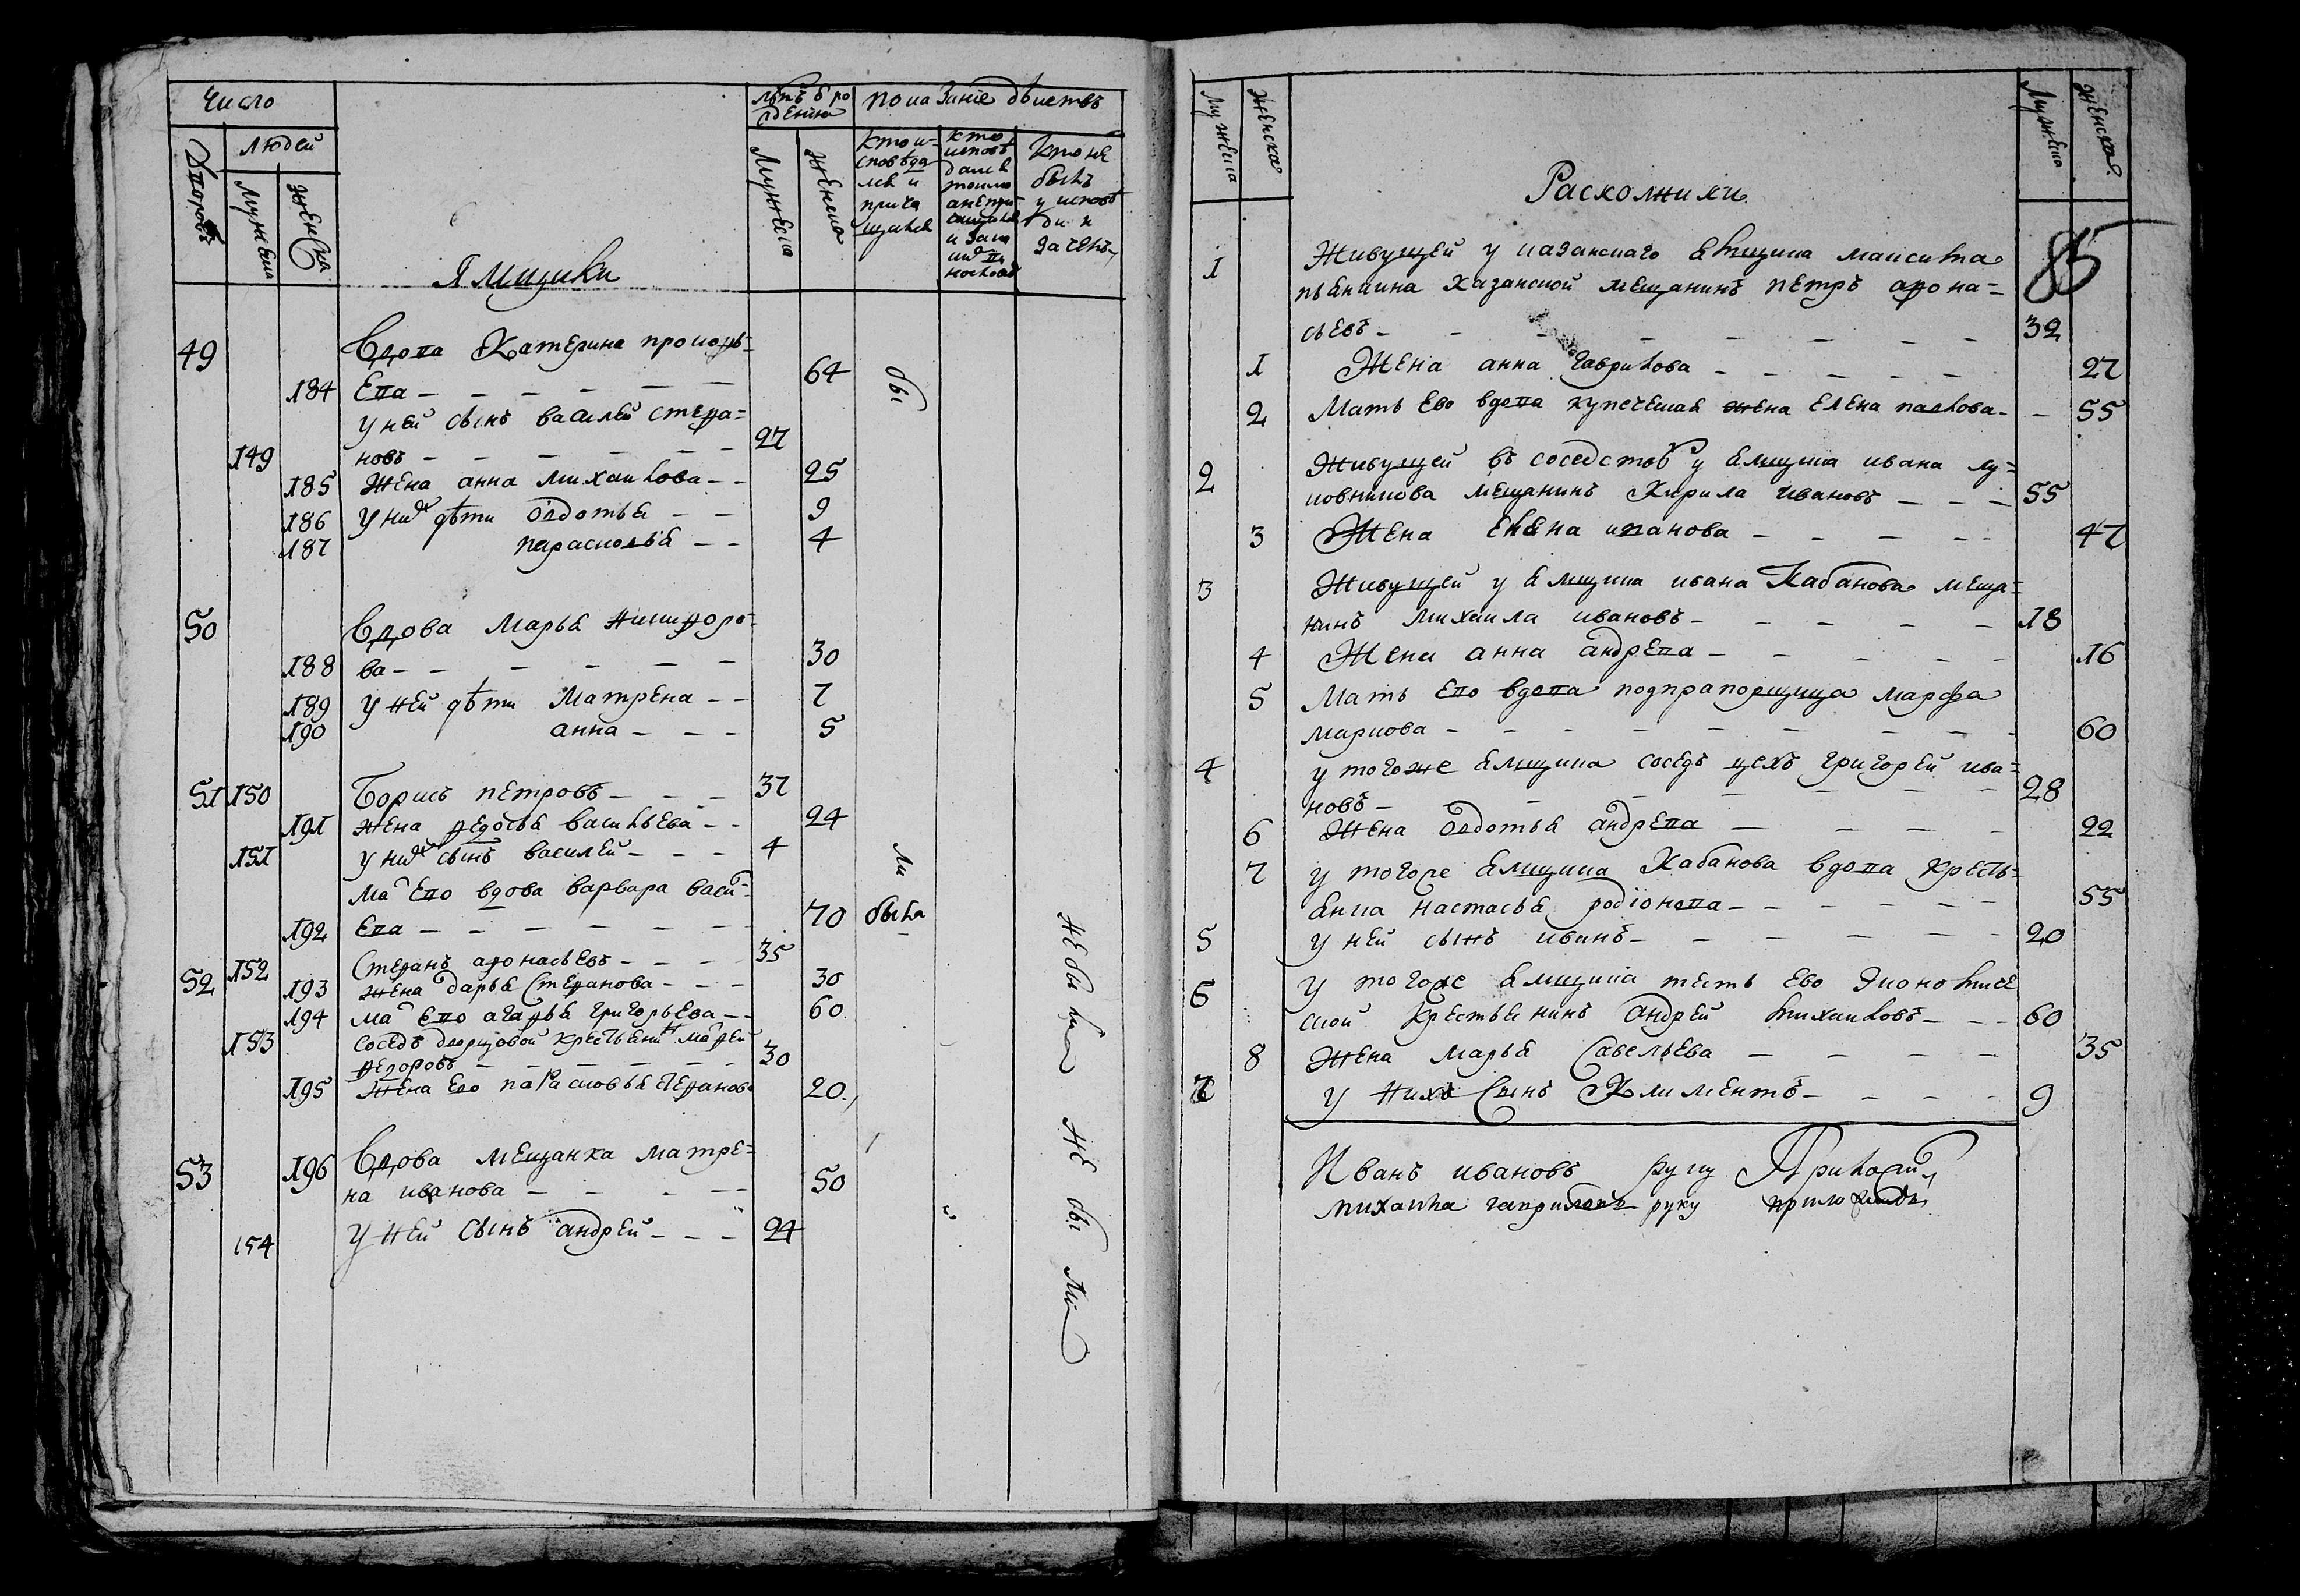 Число
людей
Дворовъ
Мужеска
женска
лѣтъ ѿ ро
ждения
Мужеска
женска
показание действъ
кто и=
сповѣда
лся и
прича
щался
кто
исповѣ
дался
токмо
а не при=
чащался
и за
кто не
былъ
у исповѣ
ди и
за чемъ
Ямщики
49
Вдова Катерина прокофь=
184 Ева 64
бы
у ней сынъ василей стефа=
149 новъ 27
185 жена анна михаилова 25
186 у них дѣти овдотья 9
187 парасковья 4
50
Вдова Марья никифоро=
188 ва 30
189 у ней дѣти Матрена 7
190 анна 5
51 150 Борисъ петровъ 37
191 жена федосья васильева 24
151 у них сынъ василей 4
ли
ма Ево вдова варвара васи=
192 Ева 70 была
52 152 Стефанъ афонасьевъ 35
193 жена дарья Стефанова 30
194 ма Ево агафья григорьева 60
153 соседъ дворцовой крестьянинъ матфей
федоровъ 30
195 жена Ево парасковья стефанова 20
53 196 Вдова мещанка матре=
на иванова 50
154 у ней сынъ андрей 24
не была не бы ли
Мужеска
женска
Мужеска
женска
Расколники
85
1 Живущей у казанскаго ямщика максима
пьянкина казанской мещанинъ петръ афона=
сьевъ 32
1 Жена анна гаврилова 27
2 Мать Ево вдова купеческая жена елена павлова 55
2 Живущей въ соседствѣ у ямщика ивана лу=
ковникова мещанинъ Кирила ивановъ 55
3 Жена елена иванова 47
3 Живущей у ямщика ивана Кабанова меща=
нинъ михаила ивановъ 18
4 Жена анна андрева 16
5 Мать Ево вдова подпрапорщица марфа
маркова 60
4 у тогоже ямщика соседъ цехъ григорей ива=
новъ 28
6 Жена овдотья андрева 22
7 у тогоже ямщика Кабанова вдова кресть=
янка настасья родионова 55
5 у ней сынъ иванъ 20
6 у тогоже ямщика тесть ево экономиче
ской крестьянинъ андрей михаиловъ 60
8 жена марья савельева 35
7 у нихъ сынъ Климентъ 9
Иванъ ивановъ руку Приложи
михаила гавриловъ руку приложилъ